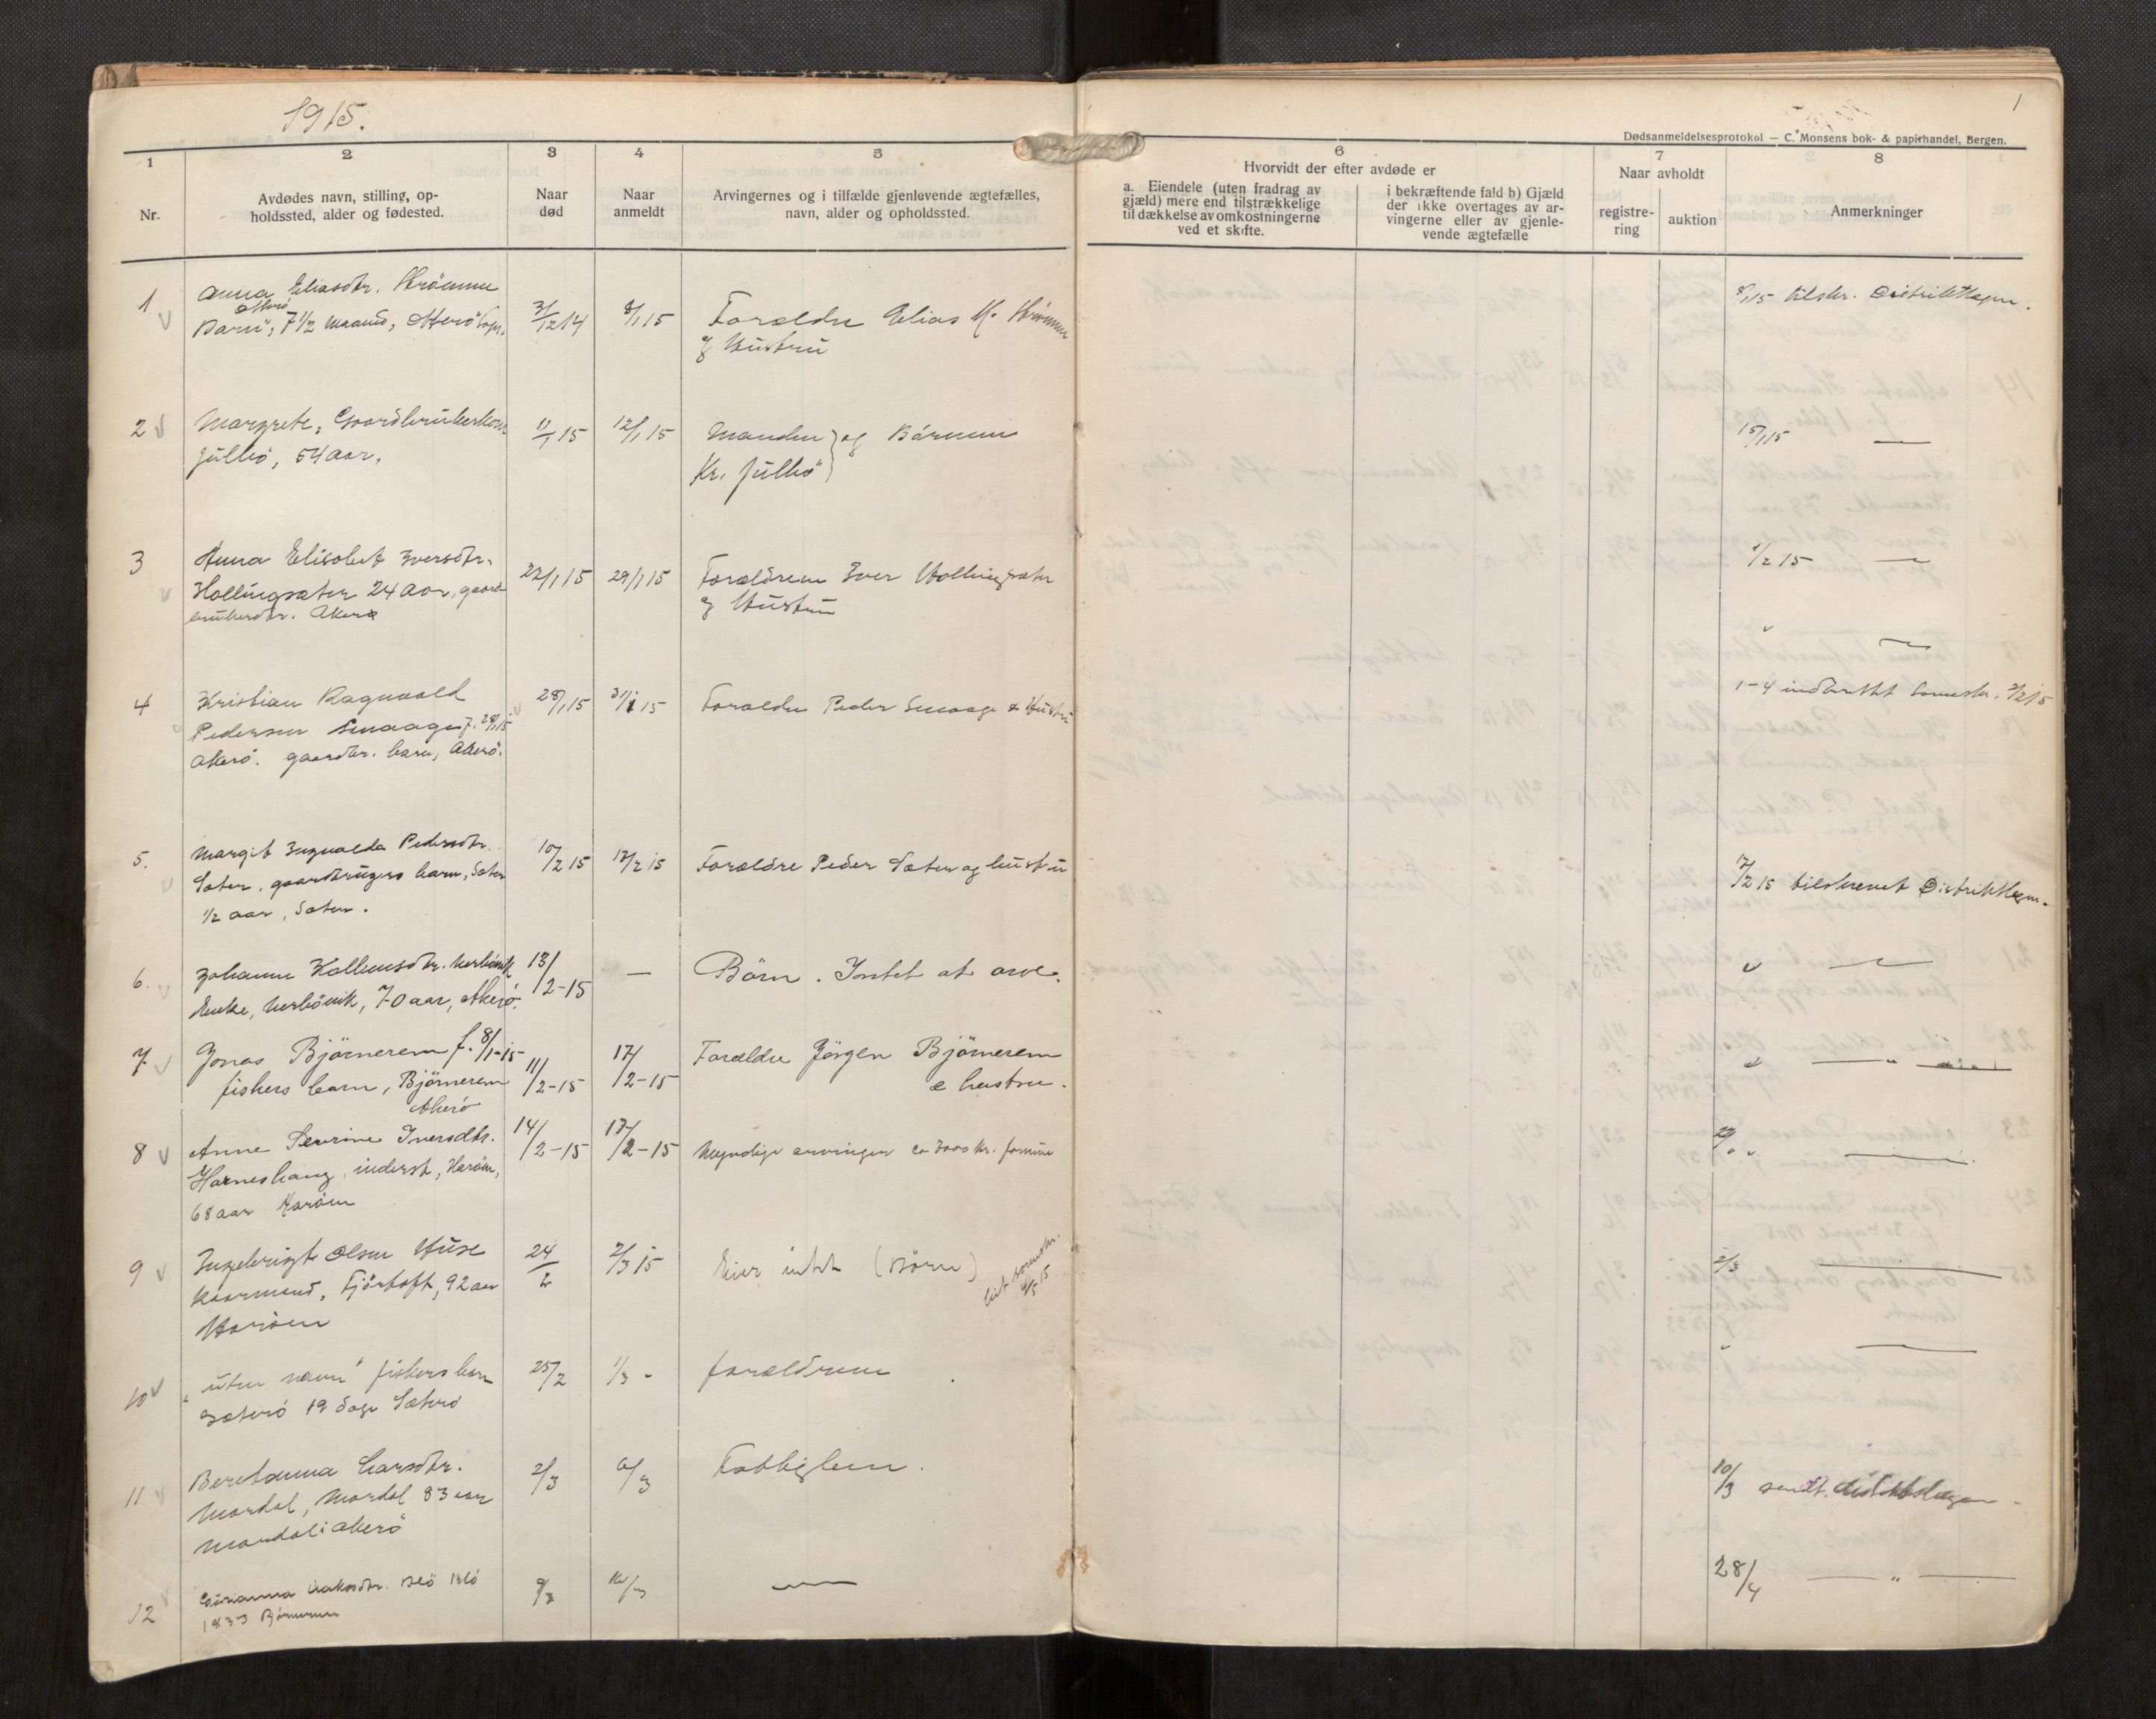 1915.
1
Dødsanmeldelsesprotokol — C. Monsens bok- & papirhandel, Bergen.
1
2
3
4
5
6
7
8
Nr.
Avdødes navn, stilling, op-
holdssted, alder og fødested.
Naar
død
Naar
anmeldt
Arvingernes og i tilfælde gjenlevende ægtefælles,
navn, alder og opholdssted.
Hvorvidt der efter avdøde er
a. Eiendele (uten fradrag av
gjæld) mere end tilstrækkelige
til dækkelse av omkostningerne
ved et skifte.
i bekræftende fald b) Gjæld
der ikke overtages av ar-
vingerne eller av gjenle-
vende ægtefælle
Naar avholdt
registre-
ring
auktion
Anmerkninger
1
Anna Eliasdtr. Strömme
Akerö
Barn, 7 1/2 maaned, Akerö sogn.
31/12 14
8/1 15
Forældre Elias Strömme
& Hustru
8/1 15 tilskr. Distriktslægen.
2
Margrete, Gaardbrukerkone
Julbö, 54 aar.
11/1 15
12/1 15
Manden og Börnene
Kr. Julbö
15/1 15 —
3
Anna Elisabet Iversdtr.
Hollingsæter 24 aar, gaard
brukerdtr. Akerö
22/1 15
29/1 15
Forældrene Iver Hollingsæter
& Hustru
1/2 15 —
4
Kristian Ragnvald
Pedersen Smaage f. 28/1 15
Akerö. gaardbr. barn, Akerö.
28/1 15
31/1 15
Forældre Peder Smaage & Hustru
" —
1-4 indberettet Sorenskr. 2/2 15
5.
Margit Ingvalda Pedersdtr.
Sæter, gaardbrugers barn, Sæter
1/2 aar, Sæter.
10/2 15
17/2 15
Forældre Peder Sæter og hustru
17/2 15 tilskrevet Distriktslægen.
6.
Johanne Kolbensdtr. Merbövik
Enke, Merbövik, 70 aar, Akerö.
13/2-15
—
Börn. Intet at arve.
" —
7
Jonas Björnerem f. 8/1-15
fiskers barn, Björnerem
Akerö
11/2-15
17/2-15
Forældre Jörgen Björnerem
& hustru.
" — " —
8
Anne Severine Iversdtr.
Harneshaug, inderst, Haröen,
68 aar Haröen
14/2-15
17/2-15
Myndige arvinger ca 3000 kr. formue
" —
9
Ingebrigt Olsen Huse
Kaarmand, Fjörtoft, 92 aar
Haröen
24/2
2/3 15
Eier intet (Börn)
2/3 —
10
"uten navn" fiskers barn
Sæterö 19 dage Sæterö
25/2
1/3 -
forældrene
" —
11
Beretanna Larsdtr.
Mordal, Mordal 83 aar
Mordal i Akerö
2/3
6/3
Fattiglem.
10/3 sendt distriktslægen
12
1833 Björnerem
9/3
—
28/4 — " —